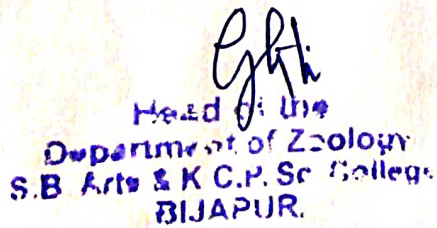 Head of the
Department of Zoology
S.B. Arts & K.C.P. Sc. College
BIJAPUR.